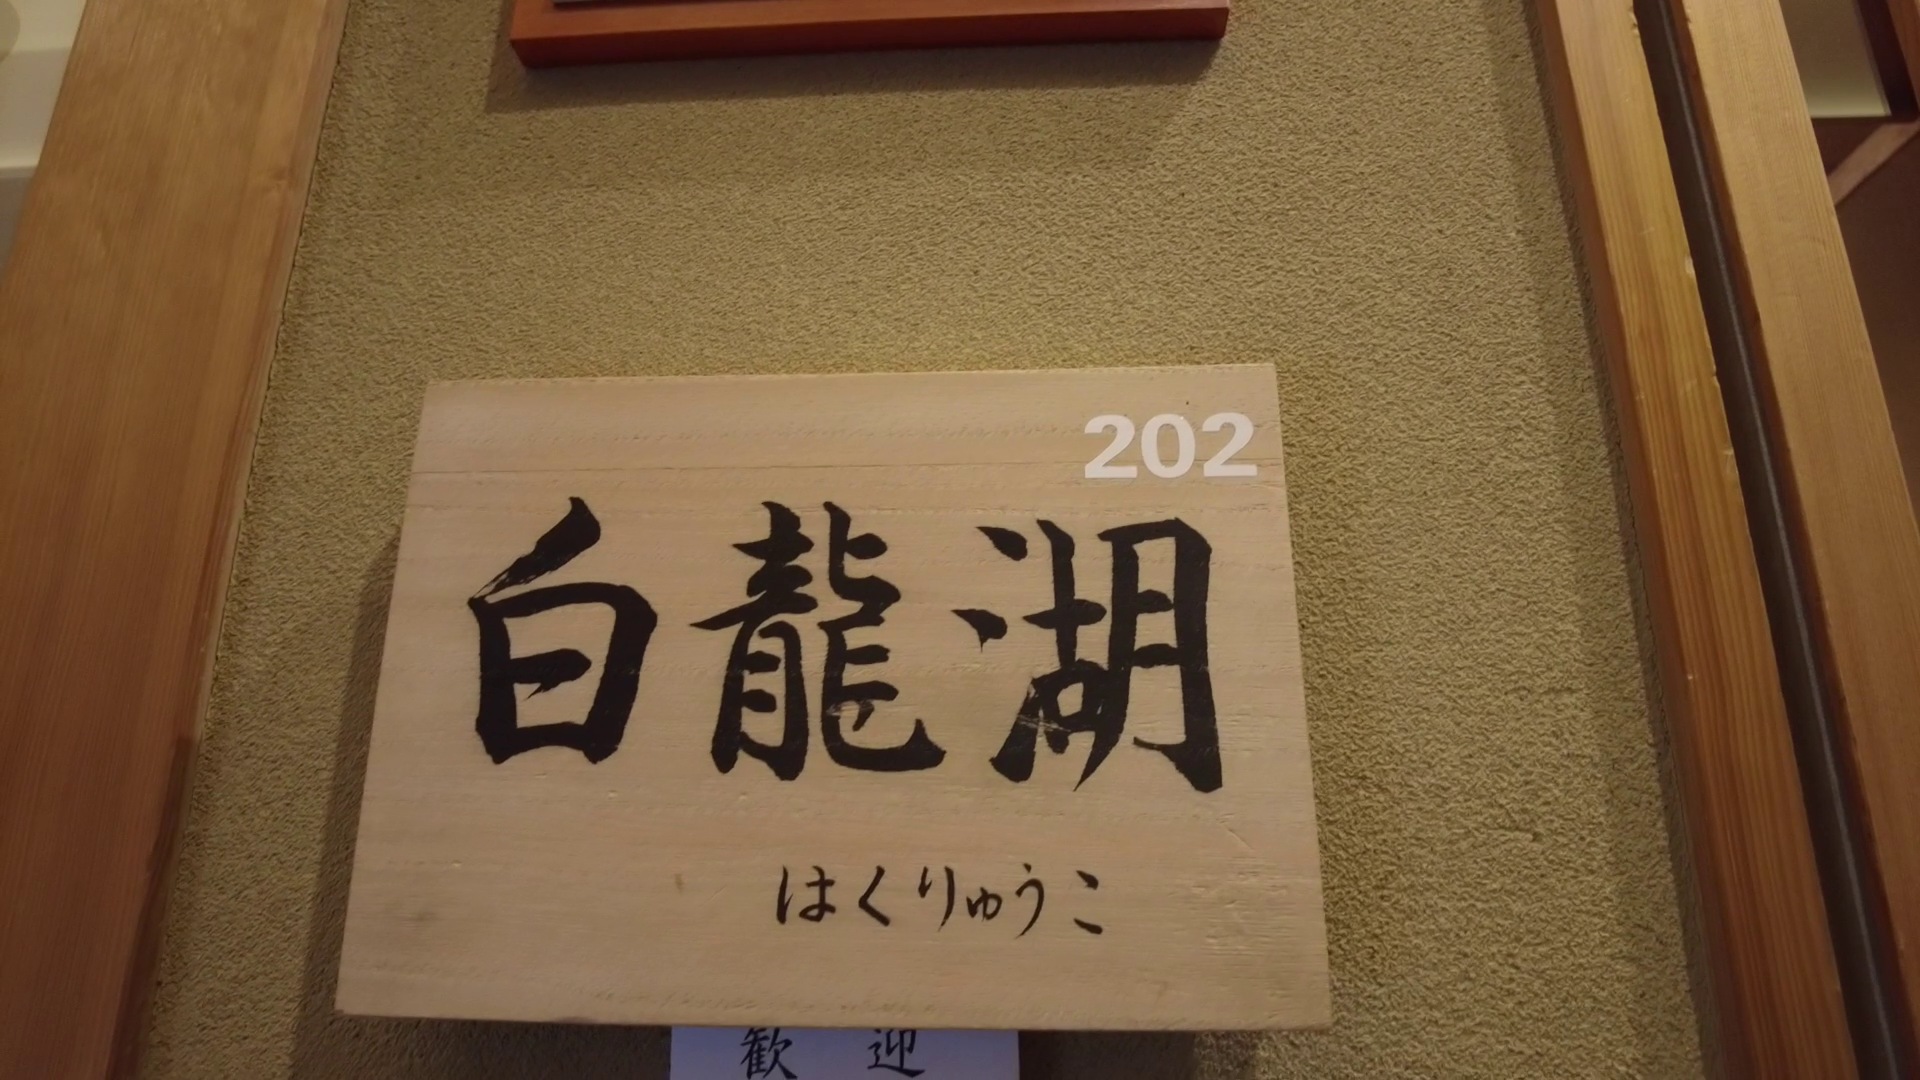 202
白龍湖
はくりゅうこ
歓迎